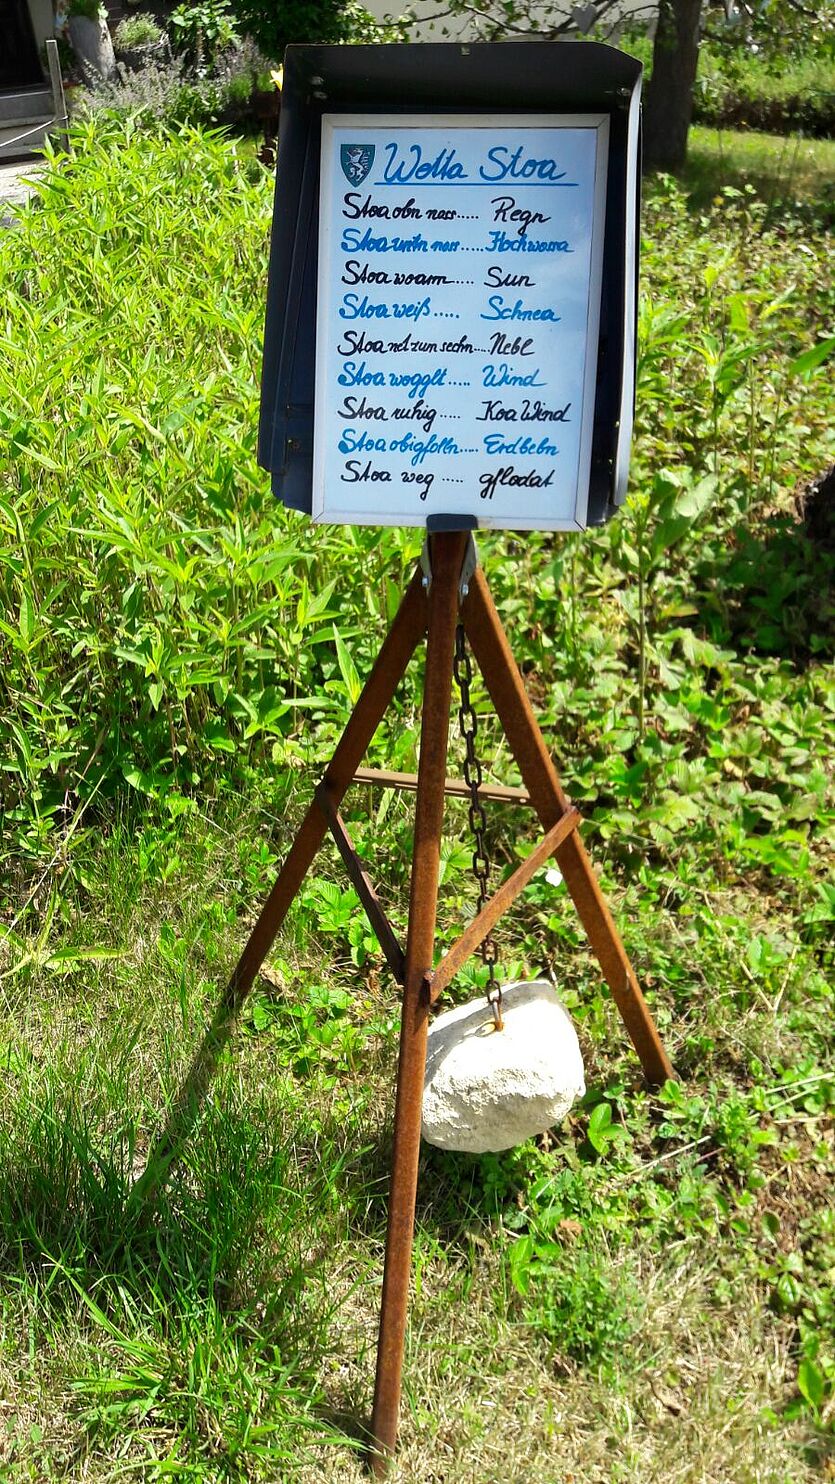 Wetta Stoa
Stoa obn nass..... Regn
Stoa untn nass..... Hochwassa
Stoa woarm..... Sun
Stoa weiß..... Schnea
Stoa net zun sechn.... Nebl
Stoa wogglt..... Wind
Stoa ruhig..... Koa Wind
Stoa obigfolln..... Erdbebn
Stoa weg ..... gflodat